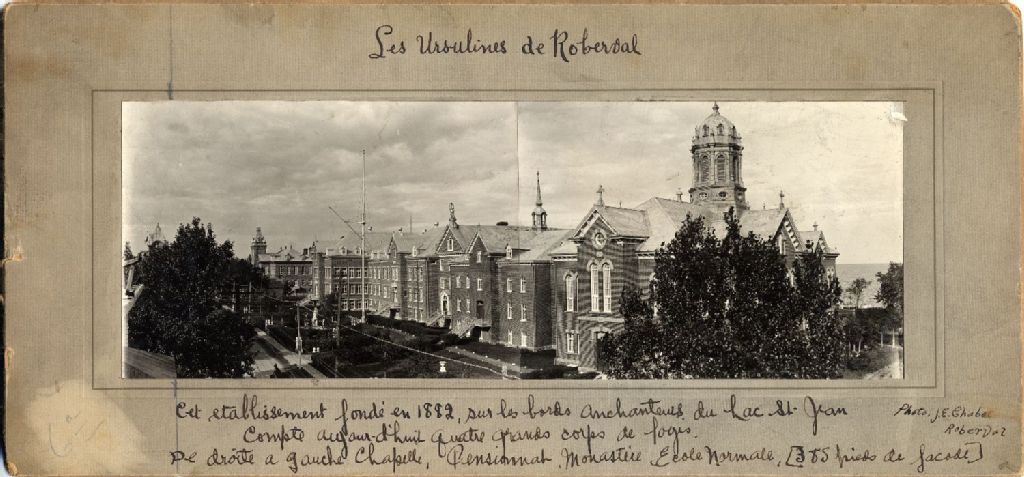 Les Ursulines de Roberval
Cet etablissement fondé en 1882, sur les bords anchanteurs du Lac St-Jean
Compte aujour-d'huit quatre grands corps de logis.
De droite a gauche Chapelle, Pensionnat, Monastère, Ecole Normale, [385 pieds de facade]
Photo, J.E. Chabot
Roberval